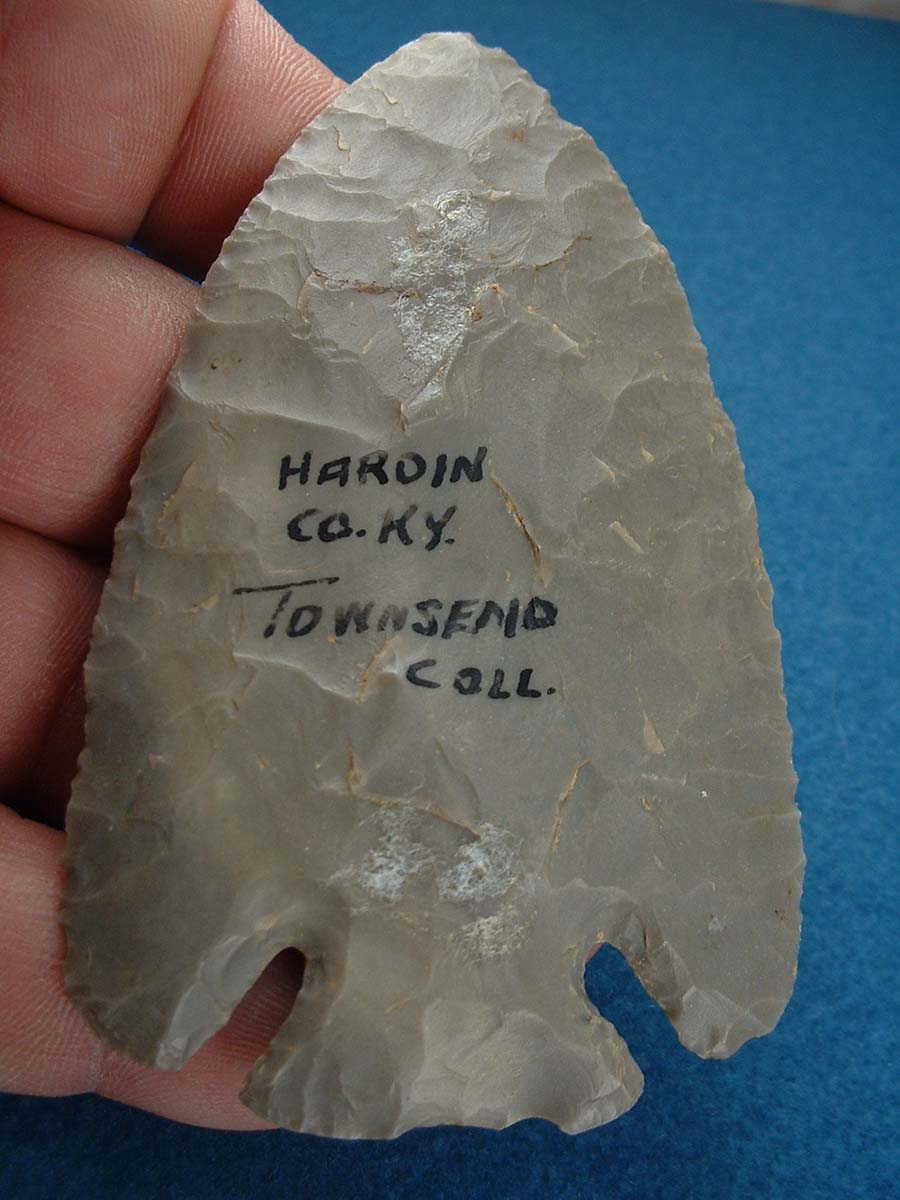 HARDIN
CO. KY.
TOWNSEND
COLL.